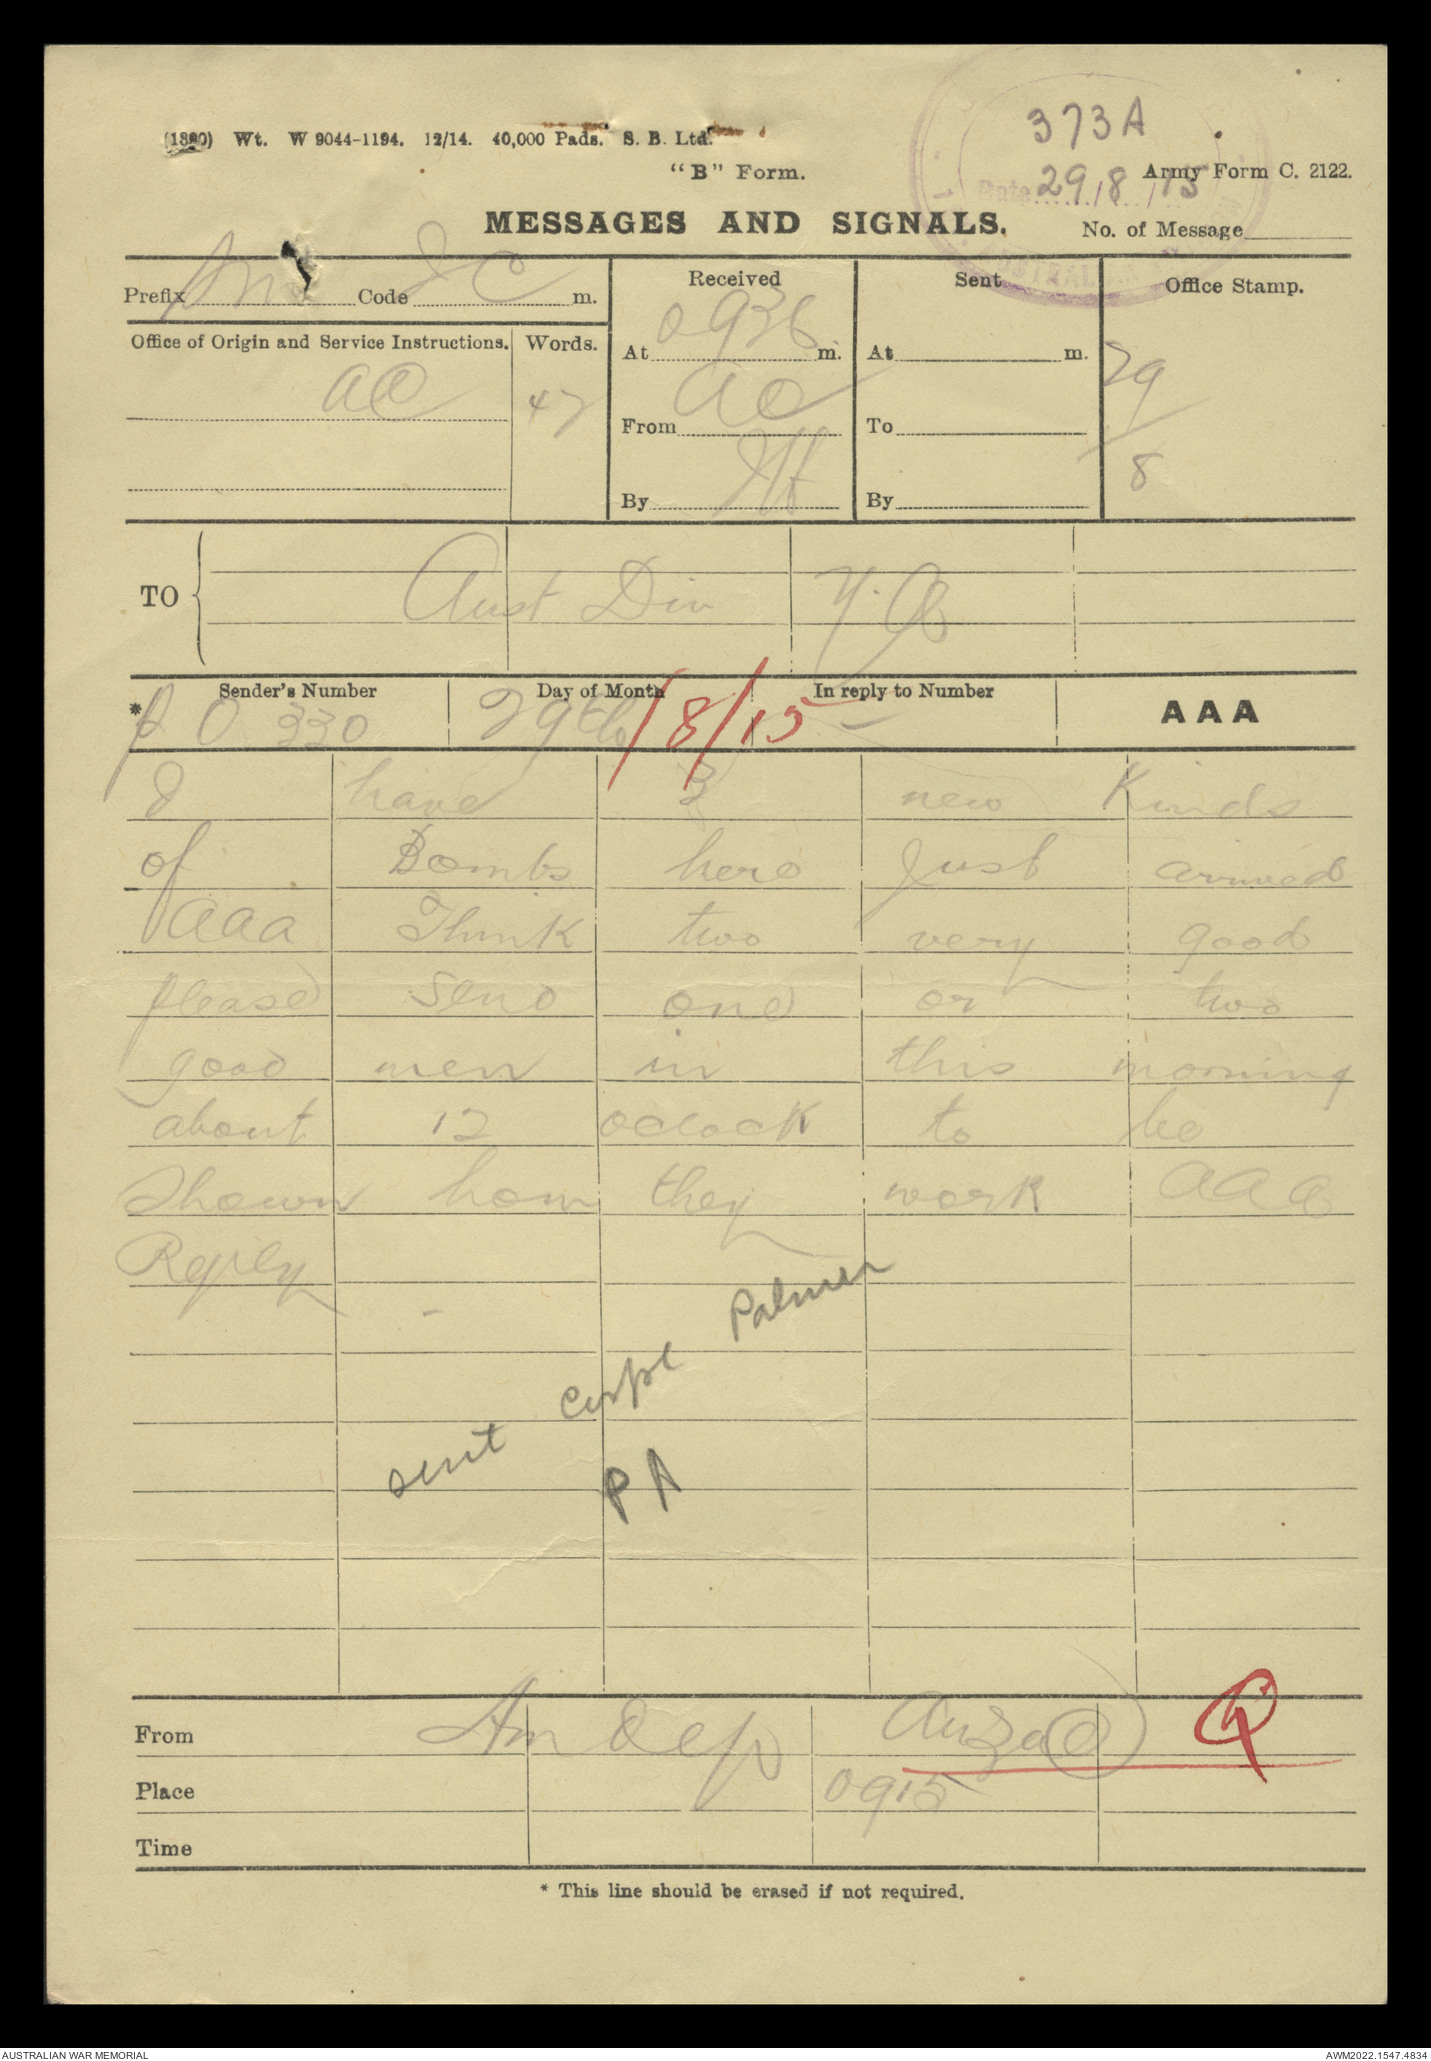 (1320) Wt. W 9044-1194. 12/14. 40,000 Pads. S. B. Ltd.
373A
"B" Form.
Army Form C. 2122.
Date 29/8/15
MESSAGES AND SIGNALS.
No. of Message
Prefix Sm Code m.
Received
Sent
Office Stamp.
Office of Origin and Service Instructions.
Words.
At 0936 m.
At m.
AC
47
From AC
To
29/8
By
By
TO
Aust Div
Sender's Number
Day of Month
In reply to Number
AAA
* O 330
29th/8/15 –
I have 3 new Kinds
of Bombs here Just arrived
aaa Think two very good
please send one or two
good men in this morning
about 12 oclock to be
Shown how they work AAA
Reply
sent Corpl Palmer
PA
From
Am Dep Anzac
Q
Place
0915
Time
* This line should be erased if not required.
AUSTRALIAN WAR MEMORIAL
AWM2022.1547.4834